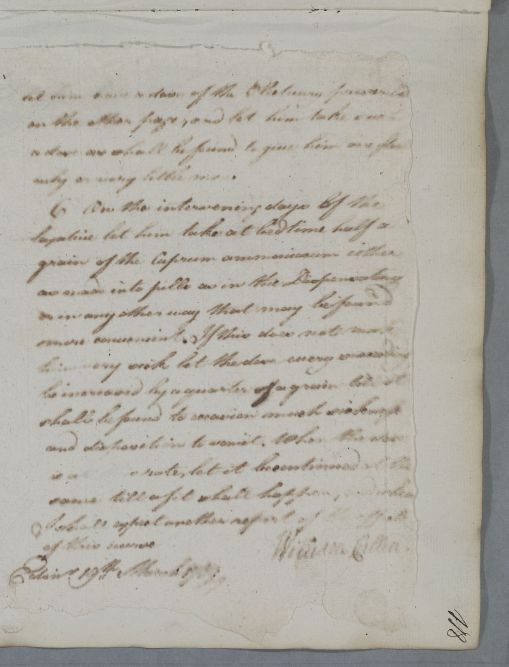 let him have a dose of the Electuary prescribed
on the other page, and let him take such
a dose as shall be found to give him one stool
only or very little more.
6 On the intervening days of the
laxative let him take at bedtime half a
grain of the Cuprum ammoniacum either
as made into pills as in the Dispensatory
or in any other way that may be found
more convenient. If this dose does not make
him very sick let the dose every
be increased by a quarter of a grain till it
shall be found to occasion much sickness
and disposition to vomit. When the dose
is let it be continued at the
same till a fit shall happen, and
I shall expect another report of the effects
of this course
William Cullen
Edinr 19th March
118